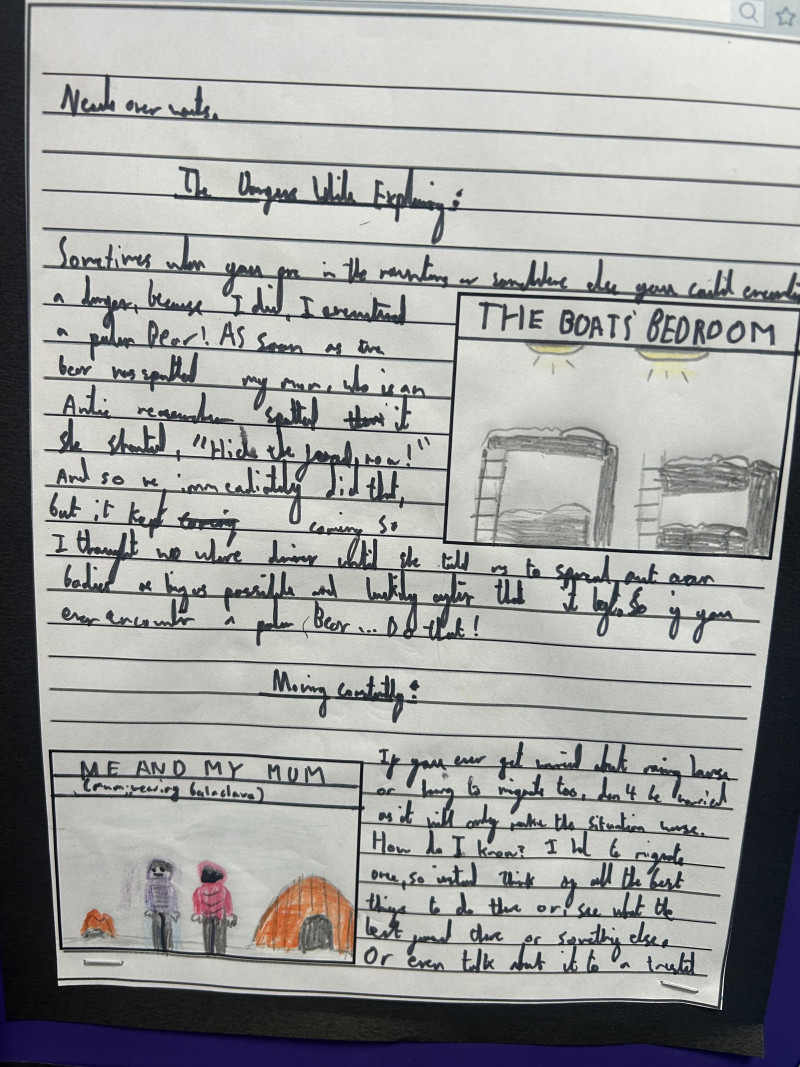 Needs over wants.
The Dangers While Exploring:
Sometimes when your are in the mountains or somewhere else your could encounter
a danger, because I did, I encountered
a polar Bear! AS soon as the
bear was spotted my mum, who is an
Antic researcher spotted it
she shouted, "Hide the food, now!"
And so we immcadiatly did that,
but it kept coming coming so
I thought we where dinner until she told us to spread out ower
bodies as big as possible and looking agter that it left. So if you
ever encounter a polar Bear... Do that!
THE BOATS' BEDROOM
Moving constantly:
ME AND MY MUM
(mum; wearing balaclava)
If your ever get worried about moving house
or having to migrate too, don't be worried
as it will only make the situation worse.
How do I know? I had to migrate
once, so insted think of all the best
things to do there or, see what the
best food there or somethig else.
Or even talk about it to a trusted